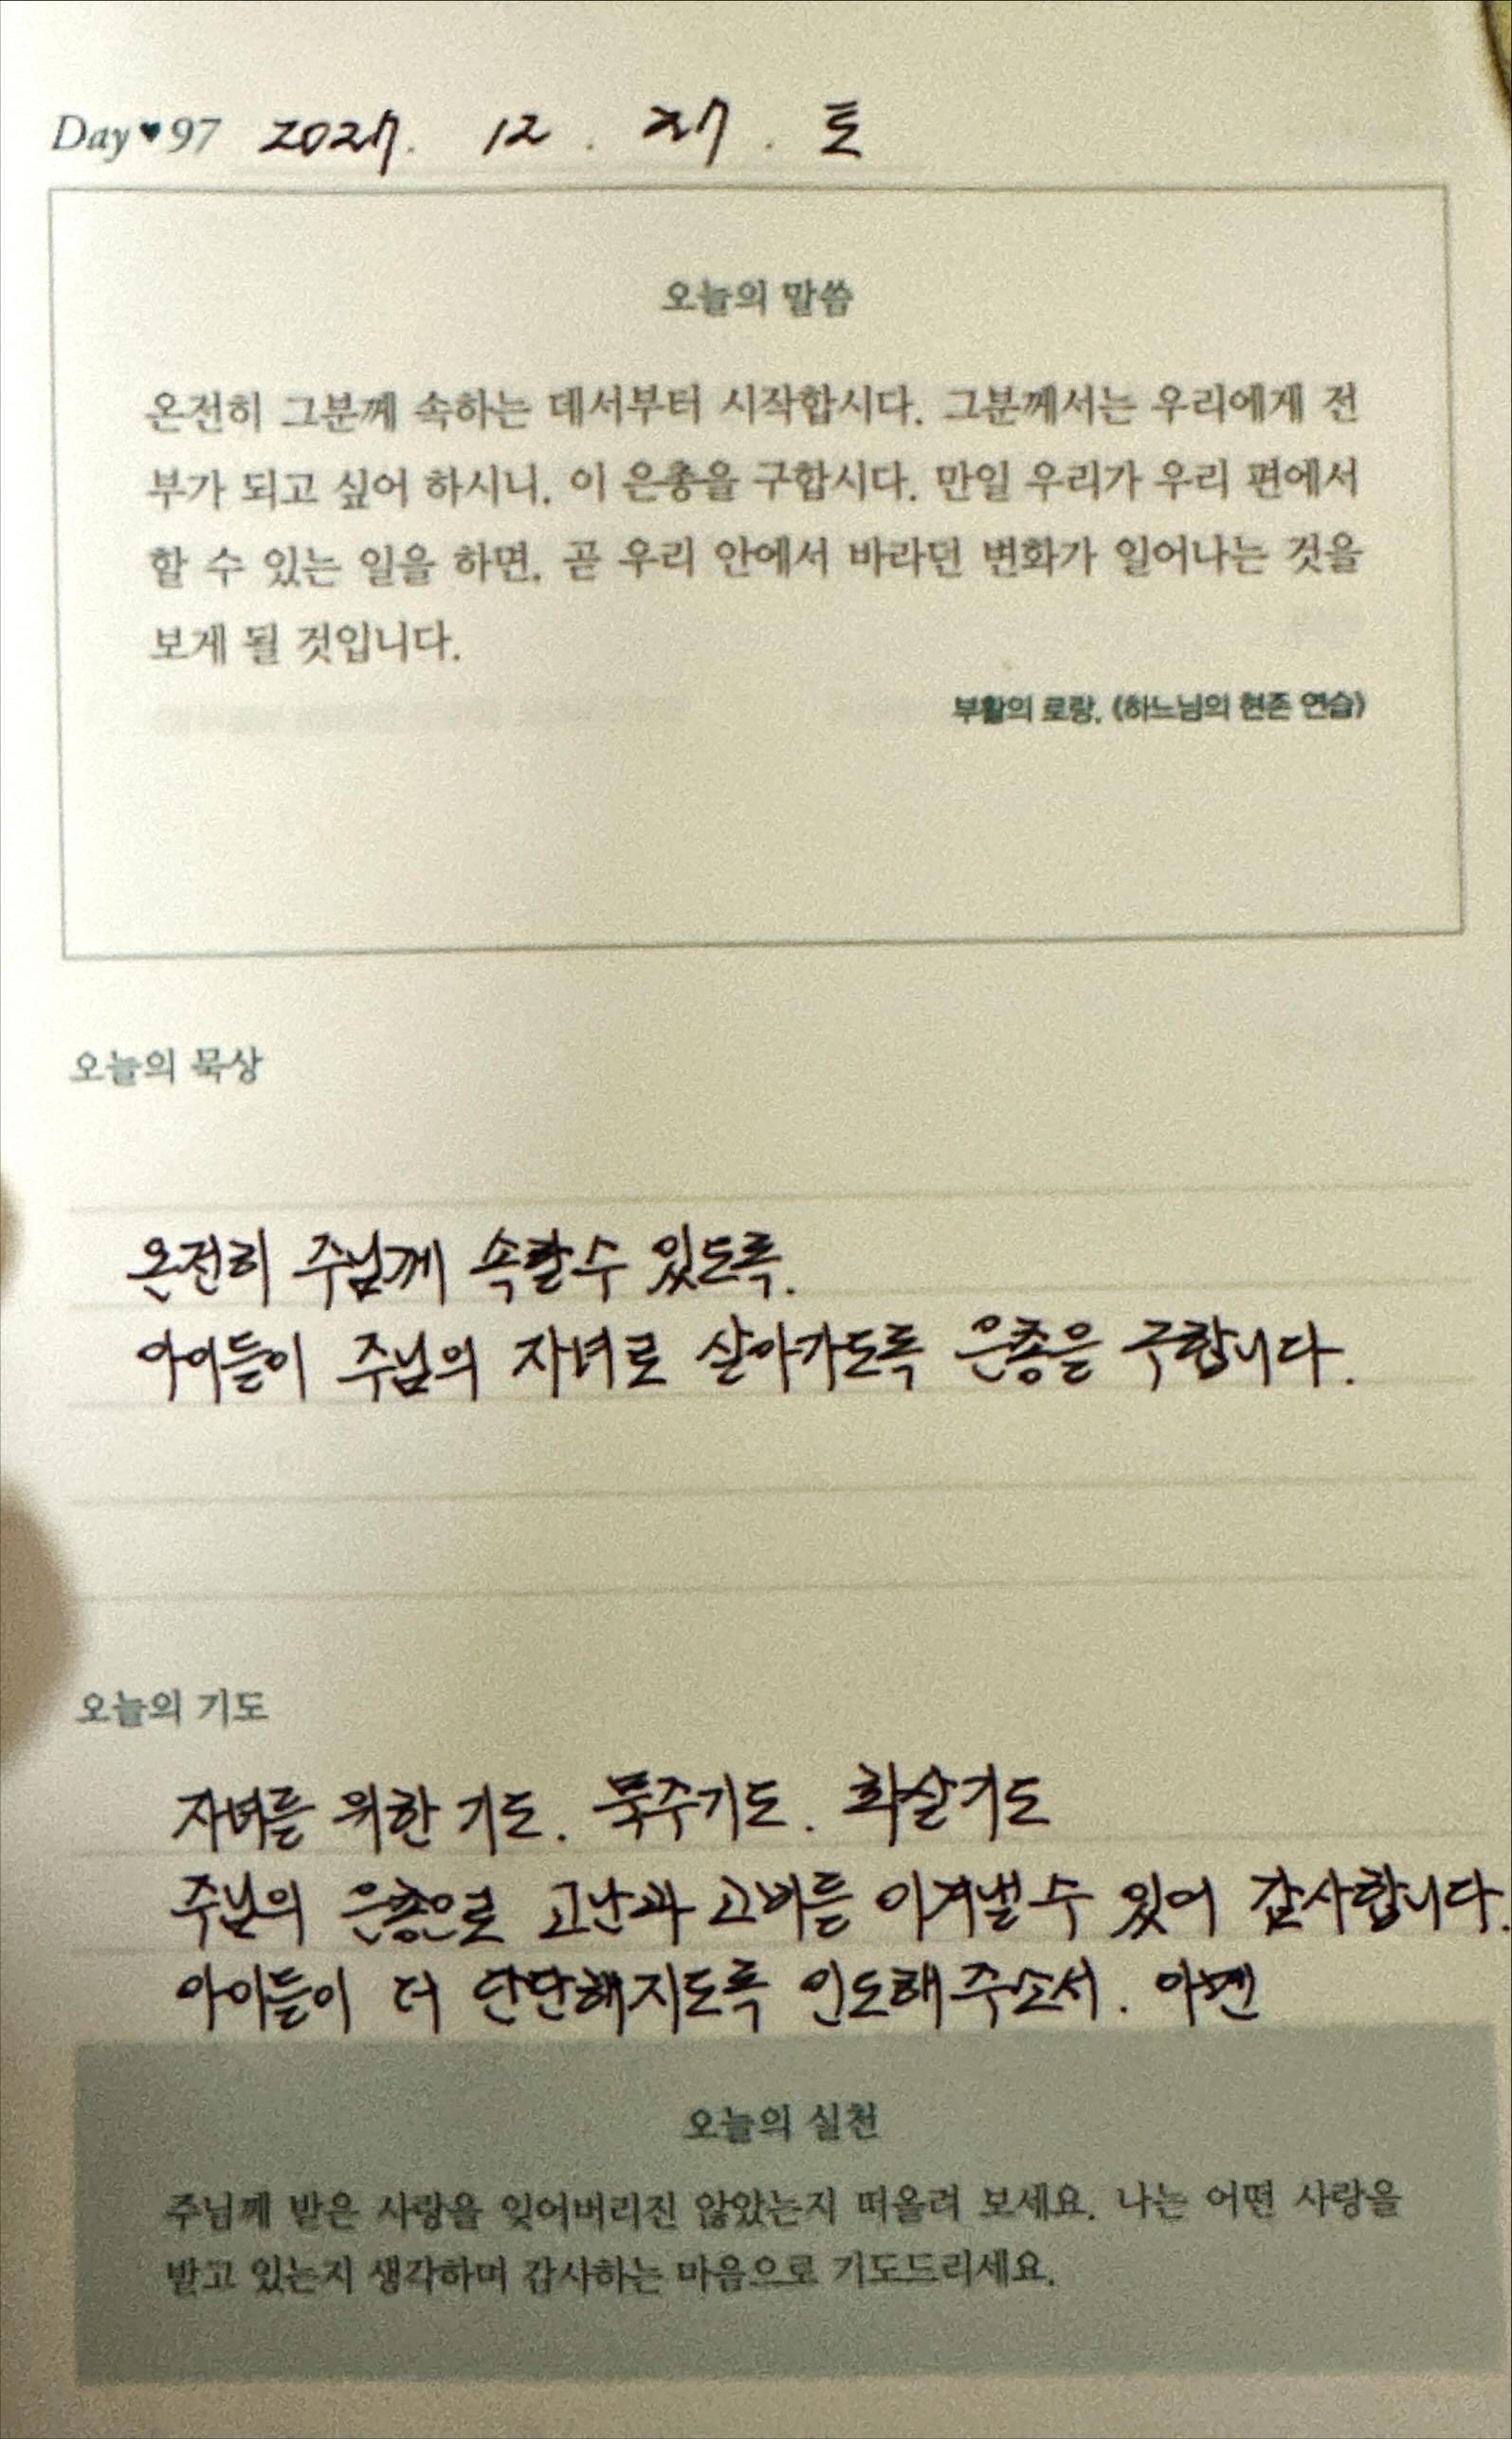 Day♥97 2027. 12. 27. 토
오늘의 말씀
온전히 그분께 속하는 데서부터 시작합시다. 그분께서는 우리에게 전
부가 되고 싶어 하시니, 이 은총을 구합시다. 만일 우리가 우리 편에서
할 수 있는 일을 하면, 곧 우리 안에서 바라던 변화가 일어나는 것을
보게 될 것입니다.
부활의 로랑, 《하느님의 현존 연습》
오늘의 묵상
온전히 주님께 속할수 있도록.
아이들이 주님의 자녀로 살아가도록 은총을 구합니다.
오늘의 기도
자녀를 위한 기도. 묵주기도. 화살기도
주님의 은총으로 고난과 고비를 이겨낼수 있어 감사합니다.
아이들이 더 단단해지도록 인도해주소서. 아멘
오늘의 실천
주님께 받은 사랑을 잊어버리진 않았는지 떠올려 보세요. 나는 어떤 사랑을
받고 있는지 생각하며 감사하는 마음으로 기도드리세요.